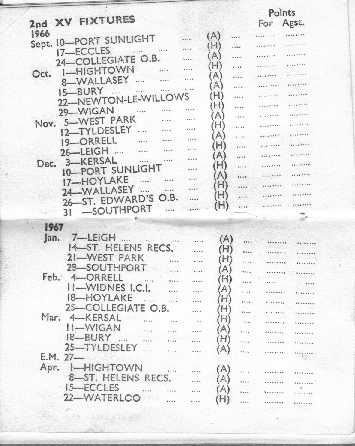 2nd XV FIXTURES Points
1966 For Agst.
Sept. 10—PORT SUNLIGHT ... (A) ...... ......
17—ECCLES ... ... (H) ...... ......
24—COLLEGIATE O.B. ... ...... ......
Oct. 1—HIGHTOWN ... ... ...... ......
8—WALLASEY ... ... ...... ......
15—BURY ... ... ... ...... ......
22—NEWTON-LE-WILLOWS ...... ......
29—WIGAN ... ... ...... ......
Nov. 5—WEST PARK ... ... ...... ......
12—TYLDESLEY ... ... ...... ......
19—ORRELL ... ... ...... ......
26—LEIGH ... ... ... ...... ......
Dec. 3—KERSAL ... ... ...... ......
10—PORT SUNLIGHT ... ...... ......
17—HOYLAKE ... ... ...... ......
24—WALLASEY ... ... ...... ......
26—ST. EDWARD'S O.B. ... (H) ...... ......
31 —SOUTHPORT ... ... (H) ...... ......
1967
Jan. 7—LEIGH ... ... ... (A) ...... ......
14—ST. HELENS RECS. ... (H) ...... ......
21—WEST PARK ... ... (H) ...... ......
28—SOUTHPORT ... ... (A) ...... ......
Feb. 4—ORRELL ... ... (H) ...... ......
11—WIDNES I.C.I. ... ... ...... ......
18—HOYLAKE ... ... ...... ......
25—COLLEGIATE O.B. ... (H) ...... ......
Mar. 4—KERSAL ... ... (H) ...... ......
11—WIGAN ... ... (A) ...... ......
18—BURY ... ... ... ...... ......
25—TYLDESLEY ... ... (A) ...... ......
E.M. 27—
Apr. 1—HIGHTOWN ... ... (A) ...... ......
8—ST. HELENS RECS. ... ...... ......
15—ECCLES ... ... (A) ...... ......
22—WATERLOO ... ... (H) ...... ......